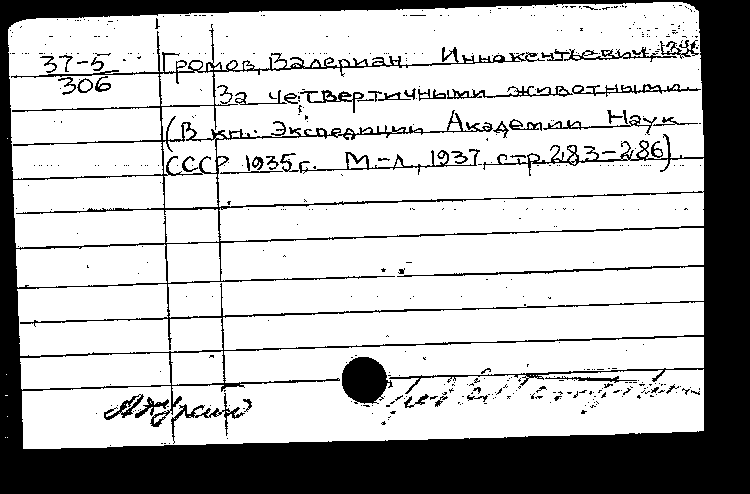 37-5
306
Громов, Валериан Иннокентьевич, 1896
За четвертичными животными
(В кн.: Экспедиции Академии Наук
СССР 1935г. М.-Л., 1937, стр. 283-286).